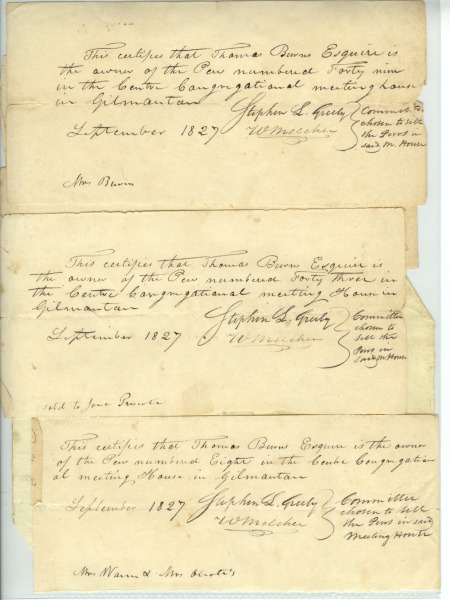 This certifies that Thomas Burns Esquire is
the owner of the Pew numbered Forty nine
in the Centre Congregational meeting house
in Gilmanton
Stephen L. Greely
September 1827
W Melcher
Committee
chosen to sell
the Pews in
said M. House
Mrs Burns
This certifies that Thomas Burns Esquire is
the owner of the Pew numbered Forty three in
the Centre Congregational meeting House in
Gilmanton
Stephen L. Greely
September 1827
W Melcher
Committee
chosen to
sell the
Pews in
said M. House
sold to
This certifies that Thomas Burns Esquire is the owner
of the Pew numbered Eight in the Centre Congregation
al meeting House in Gilmanton
September 1827
Stephen L. Greely
W Melcher
Committee
chosen to sell
the Pews in said
Meeting House
Mrs & Mrs